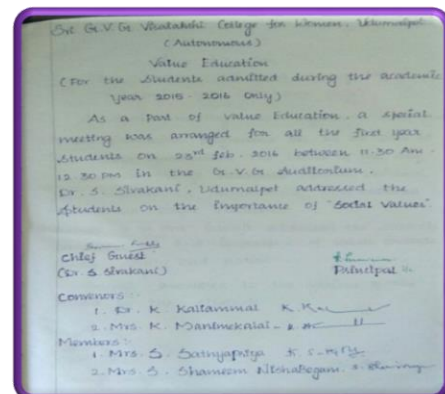 Sri G.V.G. Visalakshi College for Women, Udumalpet
(Autonomous)
Value Education
(For the Students admitted during the academic
year 2015 - 2016 only)
As a Part of value Education, a special
meeting was arranged for all the first year
Students on 23rd feb. 2016 between 11.30 Am -
12.30 pm in the G.V.G Auditorium.
Dr. S. Sivakani, Udumalpet addressed the
Students on the importance of "Social Values"
Chief Guest
(Dr. S. Sivakani)
Principal
Convenors :-
1. Dr. K. Kaliammal
2. Mrs. K. Manimekalai
Members :-
1. Mrs. S. Sathyapriya
2. Mrs. S. Shameem Nishabegam